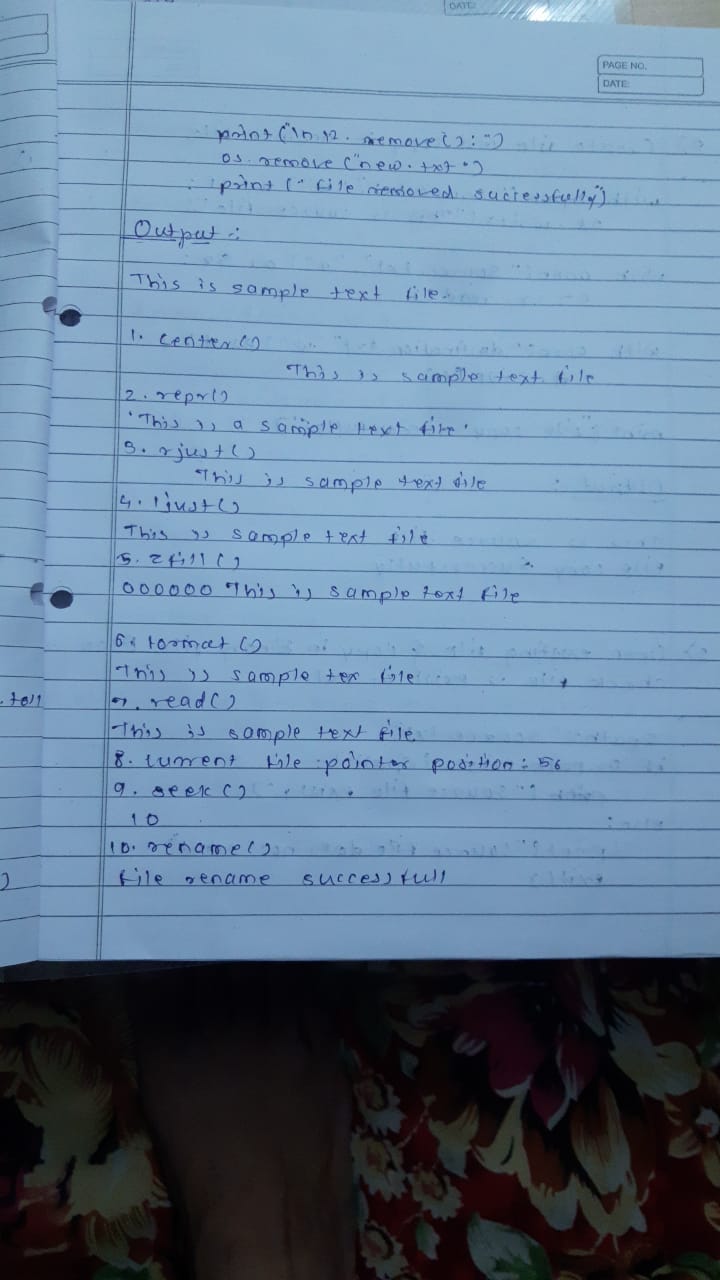 DATE:
PAGE NO.
DATE:
print("\n 12. remove():")
os. remove ("new. txt")
print (" file removed successfully")
Output :
This is sample text file.
1. center()
This is sample text file
2. repr()
'This is a sample text file'
3. rjust()
This is sample text file
4. ljust()
This is sample text file
5. zfill()
000000 This is sample text file
6. format()
This is sample tex file
. tell
7. read()
This is sample text file
8. current file pointer position: 56
9. seek()
10
10. rename()
)
file rename successfull